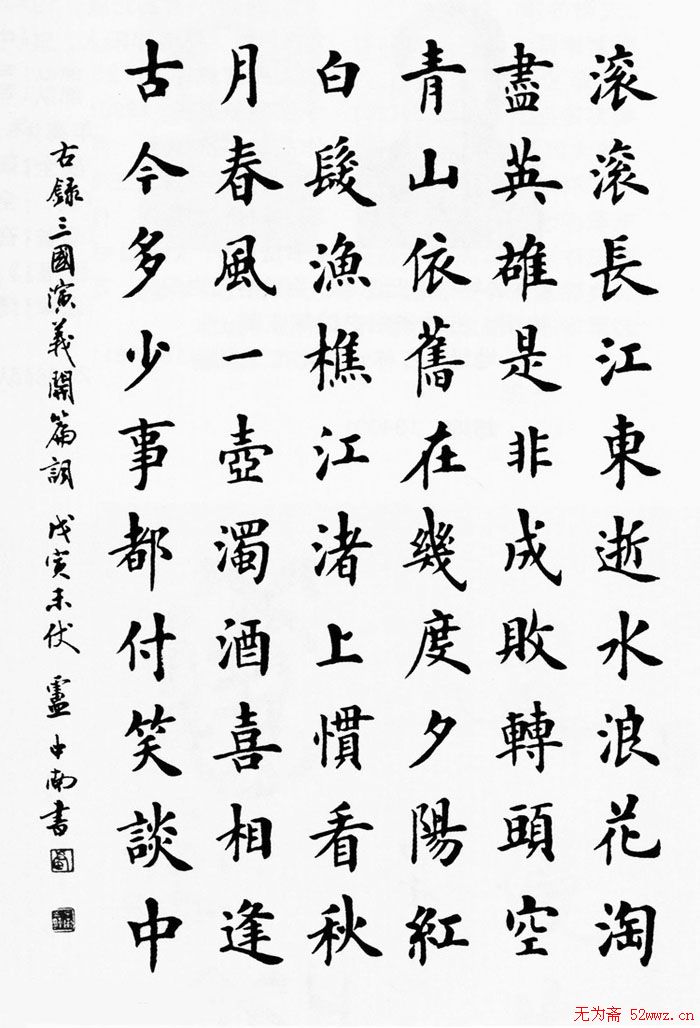 滚滚長江東逝水浪花淘
盡英雄是非成敗轉頭空
青山依舊在幾度夕陽紅
白髮漁樵江渚上慣看秋
月春風一壺濁酒喜相逢
古今多少事都付笑談中
右録三國演義開篇詞 戊寅末伏 盧中南書
无为斋 52wwz.cn